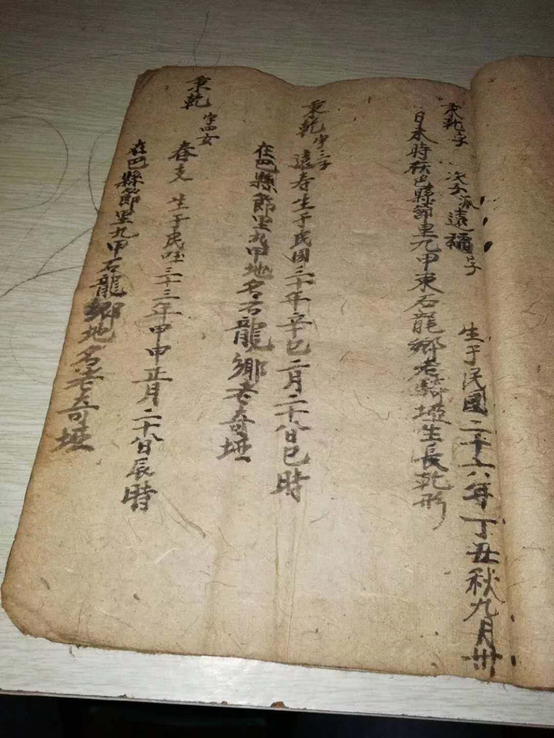 秉乾字 次子派遠福字 生于民國二十六年丁丑秋九月卅
日未時在巴縣節里九甲東石龍鄉老奇埡生長乾形
秉乾字三子遠寿生于民國三十年辛巳二月二十八日巳時
在巴縣節里九甲地名石龍鄉老奇埡
秉乾字四女
春支 生于民國三十三年甲申正月二十八日辰時
在巴縣節里九甲石龍鄉地名老奇埡